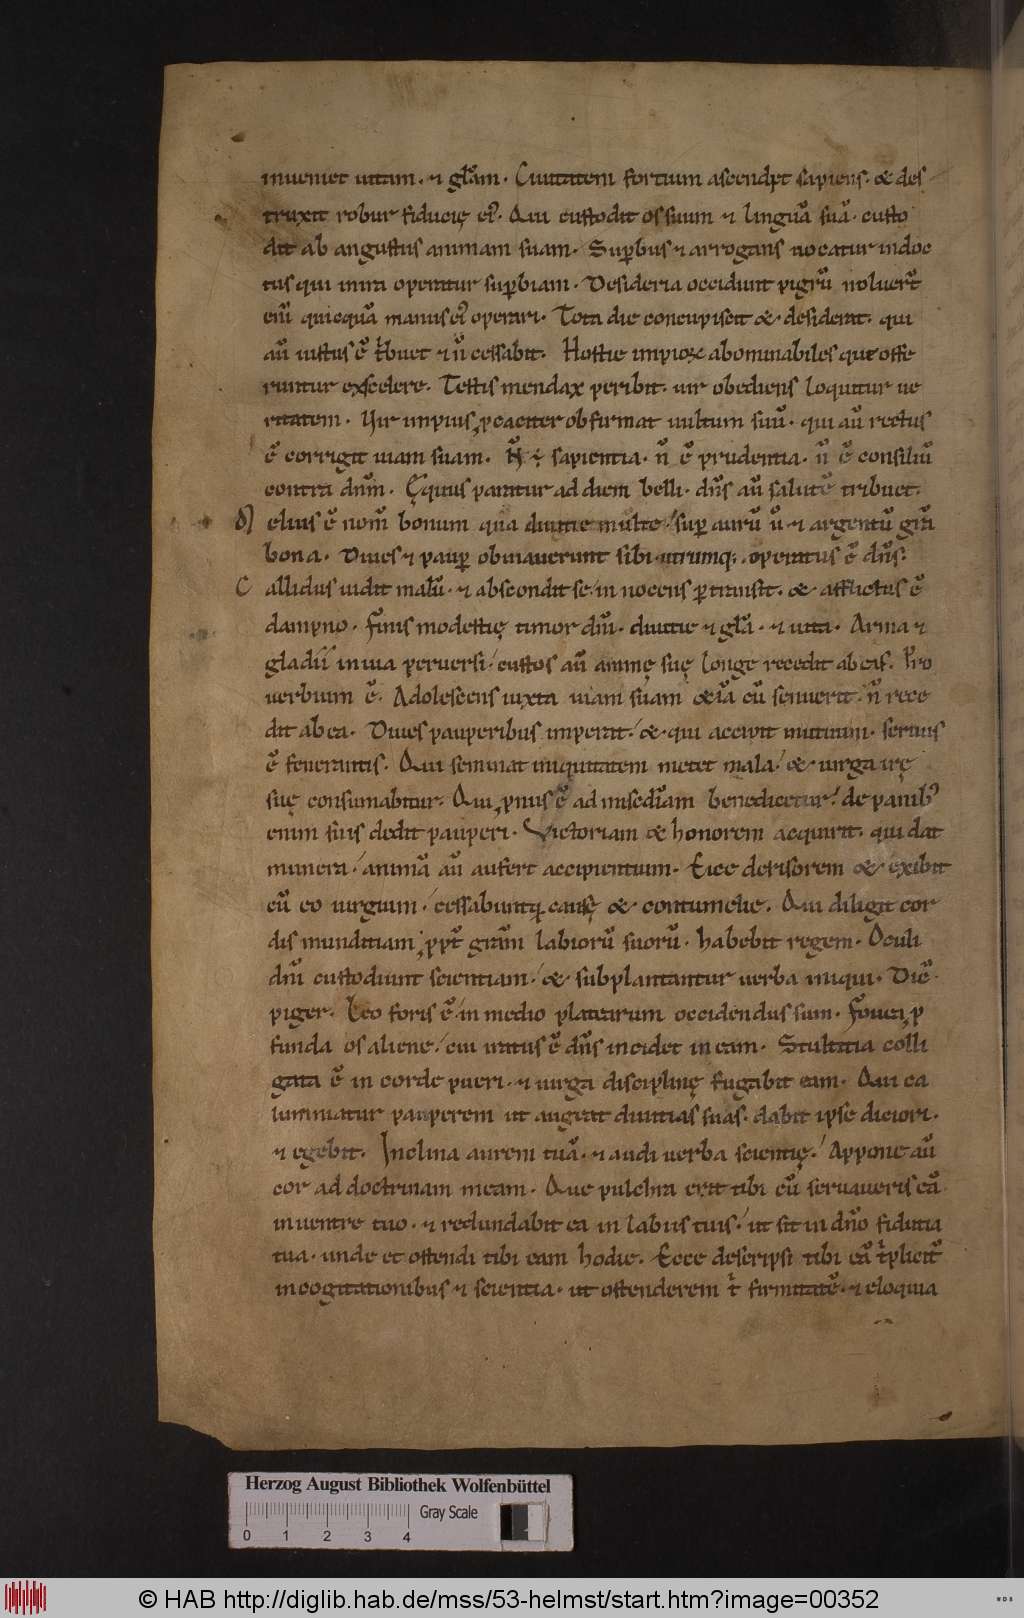 inueniet uitam. ⁊ gl̄am. Ciuitatem fortium ascendit sapiens. & des
truxit robur fiducię ei᷒. Qui custodit os suum ⁊ linguā suā. custo
dit ab angustiis animam suam. Sup̄bus ⁊ arrogans uocatur indoc
tus qui in ira operatur sup̄biam. Desideria occidunt pigrū noluer̄t
eni̅ quicquā manus ei᷒ operari. Tota die concupiscit & desiderat. qui
aū iustus ē t̄buet ⁊ n̄ cessabit. Hostie impioꝝ abominabiles que offe
runtur ex scelere. Testis mendax peribit. uir obediens loquitur ue
ritatem. Vir impius ꝓcaciter obfirmat uultum suū. qui aū rectus
ē corrigit uiam suam. N̄ ē sapientia. n̄ ē prudentia. n̄ ē consiliū
contra dn̄m. Equus paratur ad diem belli. dn̄s aū salutē tribuet.
M elius ē nom̄ bonum qua diuitie multe. sup̄ aurū ⁊ argentū gr̄a
bona. Diues ⁊ paup̄ obuiauerunt sibi. utrumq; operatus ē dn̄s.
C allidus uidit malū. ⁊ abscondit se. in nocens ꝑtransit. & afflictus ē
dampno. Finis modestię timor dn̄i. diuitie ⁊ gl̄a. ⁊ uita. Arma ⁊
gladii in uia peruersi. custos aū animę suę longe recedit ab eis. Pro
uerbium ē. Adolescens iuxta uiam suam &iā cū senuerit. n̄ rece
dit ab ea. Diues pauperibus imperat. & qui accipit mutuum. seruus
ē fenerantis. Qui seminat iniquitatem metet mala. & uirga irę
suę consumabitur. Qui ꝓnus ē ad mis̄cdiam benedicetur. de panib᷒
enim suis dedit pauperi. Victoriam & honorem acquirit. qui dat
munera. animā aū aufert accipientium. Eice derisorem & exibit
cū eo iurgium. cessabuntq; causę & contumelie. Qui diligit cor
dis munditiam ꝓpt̄ gr̄am labiorū suorū. habebit regem. Oculi
dn̄i custodiunt scientiam. & subplantantur uerba iniqui. Dic̄
piger. Leo foris ē in medio platearum occidendus sum. Fouea ꝓ
funda os aliene. cui iratus ē dn̄s incidet in eam. Stultitia colli
gata ē in corde pueri. ⁊ uirga disciplinę fugabit eam. Qui ca
lumniatur pauperem ut augeat diuitias suas. dabit ipse diciori.
⁊ egebit. Inclina aurem tuā. ⁊ audi uerba scientię. Appone aū
cor ad doctrinam meam. Que pulchra erit tibi cū seruaueris eā
in uentre tuo. ⁊ redundabit ea in labiis tuis. ut sit in dn̄o fiducia
tua. unde et ostendi tibi eam hodie. Ecce descripsi tibi eā t̄plicit̄
in cogitationibus ⁊ scientia. ut ostenderem t̄ firmitatē. ⁊ eloquia
Herzog August Bibliothek Wolfenbüttel
Gray Scale
0 1 2 3 4
© HAB http://diglib.hab.de/mss/53-helmst/start.htm?image=00352